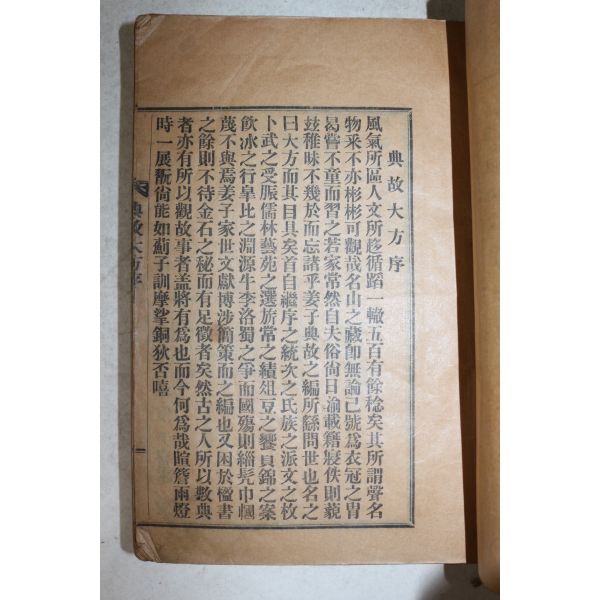 典故大方序
風氣所區人文所趍循蹈一轍五百有餘稔矣其所謂聲名
物釆不亦彬彬可觀哉名山之藏卽無論已號爲衣冠之胄
曷嘗不童而習之若家常然自夫俗尙日渝載籍寖佚則藐
玆稚昧不幾於而忘諸乎姜子典故之編所繇問世也名之
曰大方而其目具矣首自繼序之統次之氏族之派文之枚
卜武之受脤儒林藝苑之選旂常之績俎豆之饗貝錦之案
飮冰之行皐比之淵源牛李洛蜀之爭而國殤則緇髡巾幗
蔑不與焉姜子家世文獻博涉簡策而之編也又困於楹書
之餘則不待金石之秘而有足徵者矣然古之人所以數典
者亦有所以觀故事者盖將有爲也而今何爲哉暄簷雨燈
時一展翫尙能如薊子訓摩挲銅狄否嘻
典故大方序
一